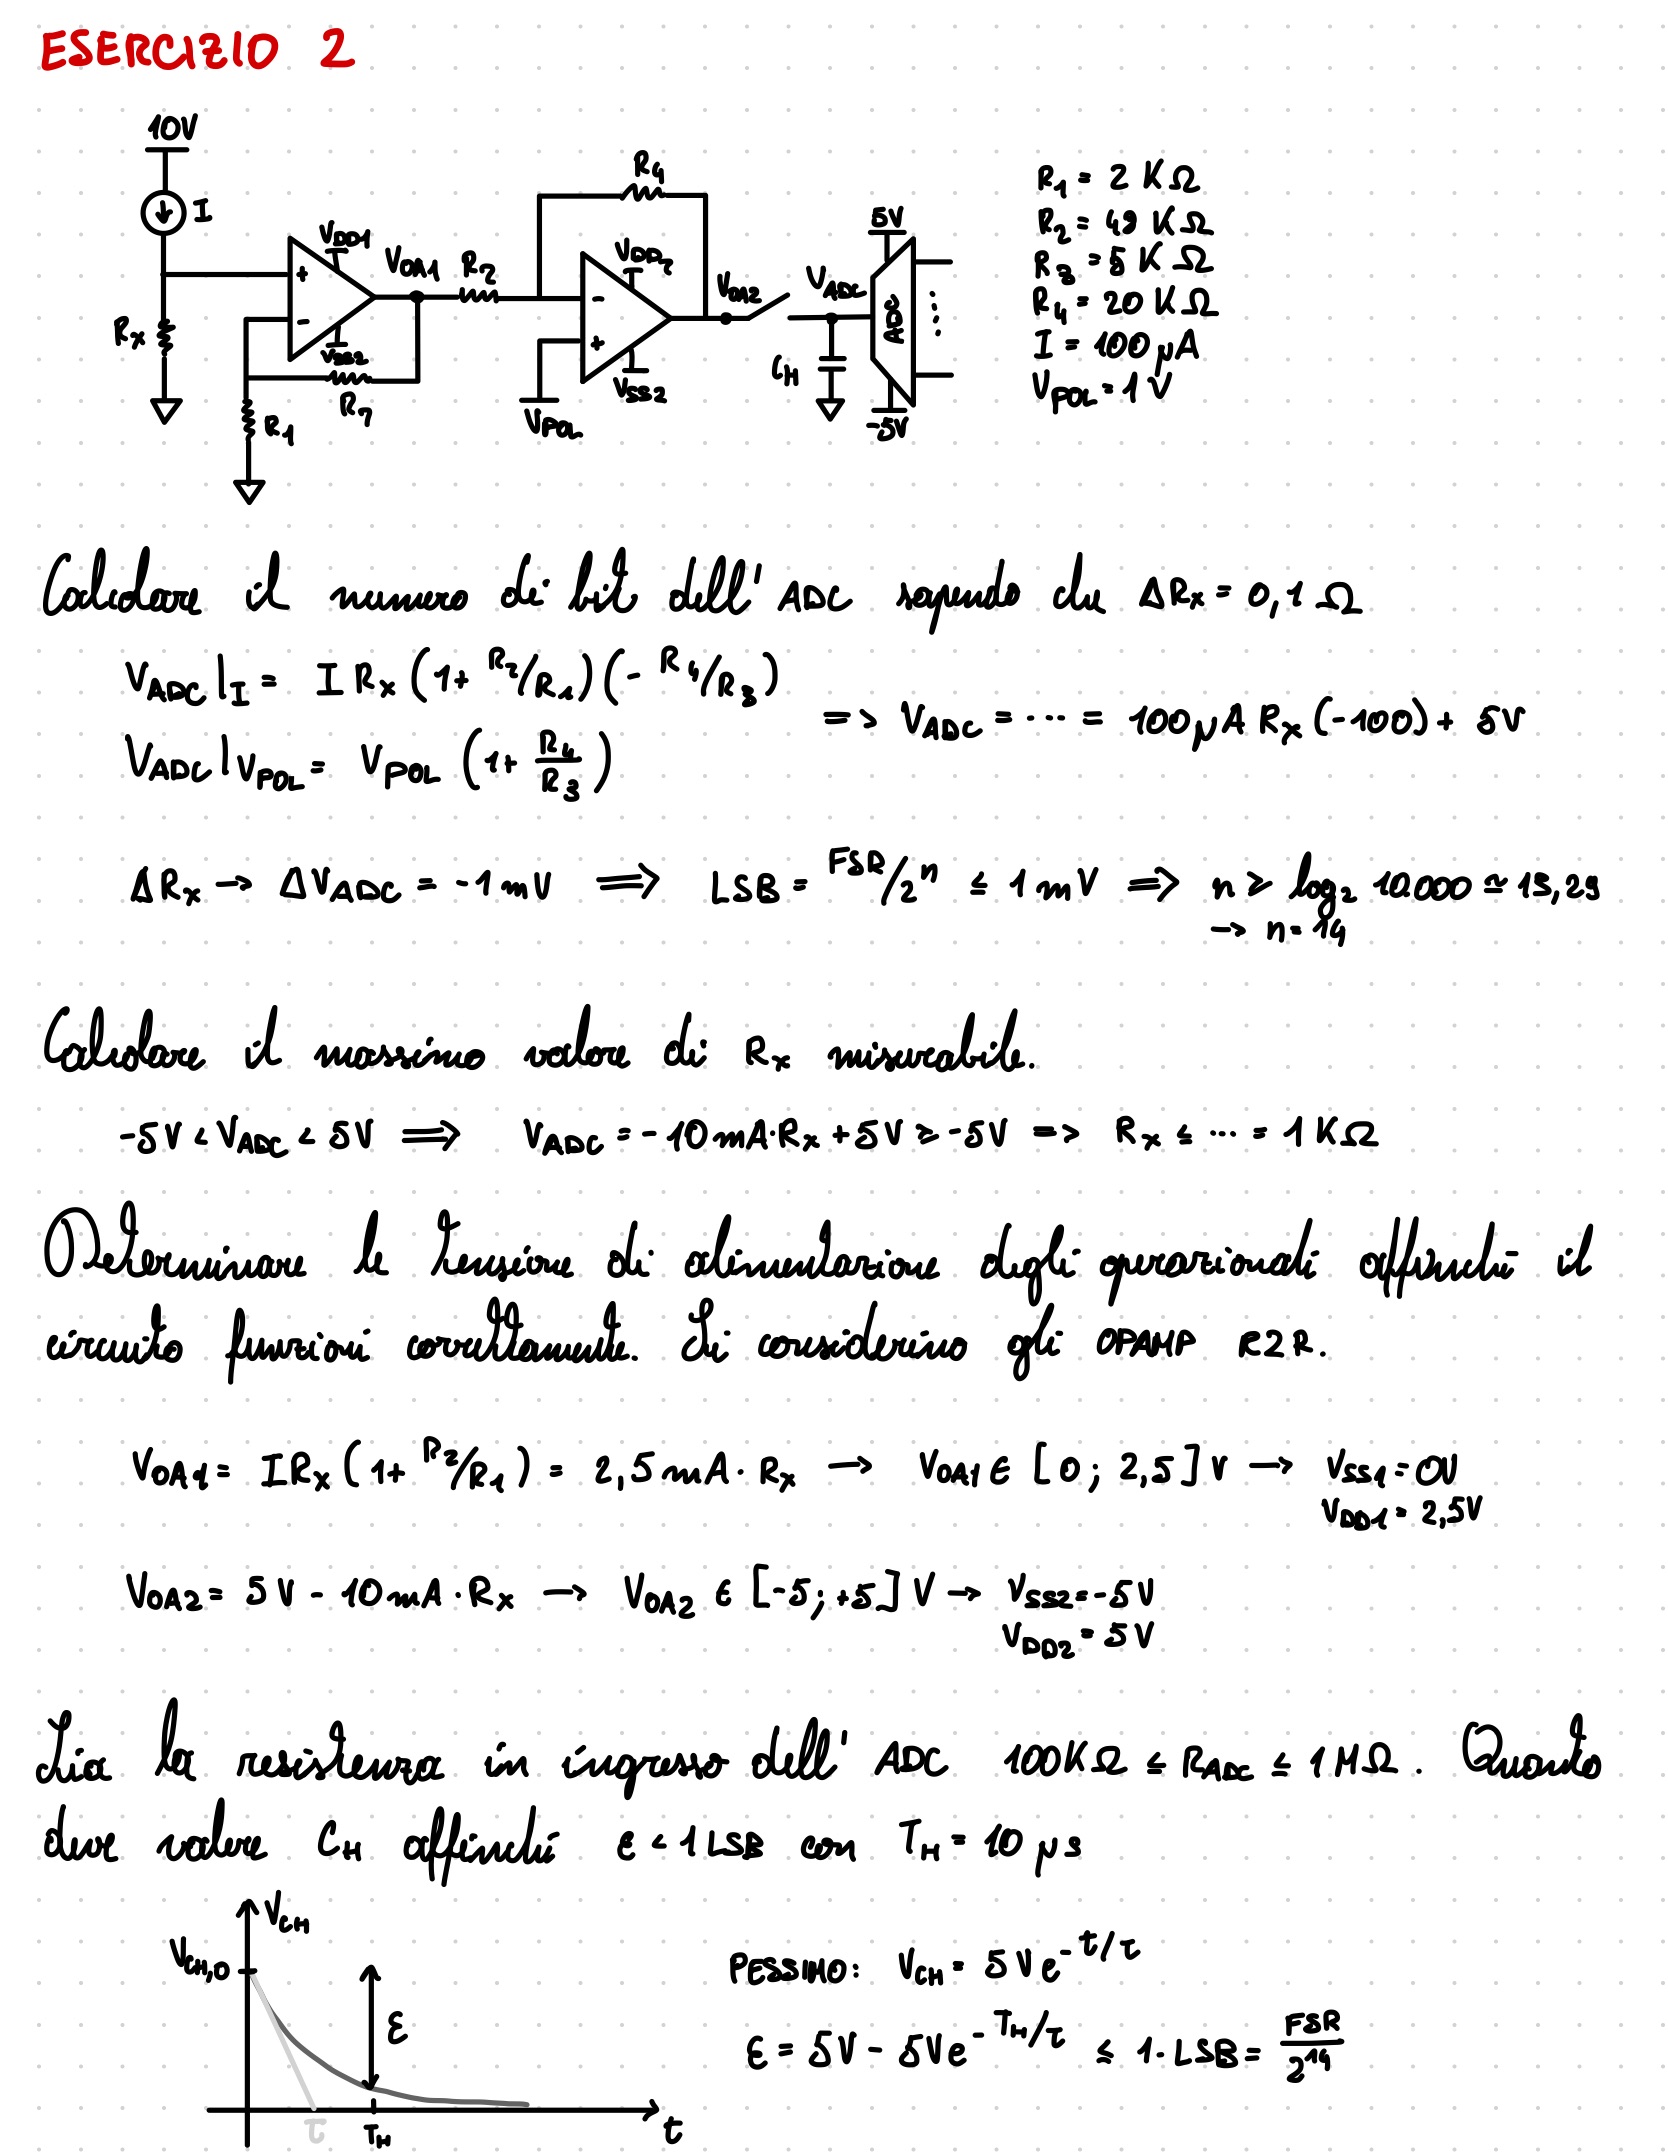 ESERCIZIO 2
10V
I
RX
VDD1
+
-
VSS2
VOA1
R2
R1
R2
R4
VDD2
-
+
VSS2
VPOL
VOA2
VADC
CH
5V
ADC
-5V
R1 = 2 KΩ
R2 = 48 KΩ
R3 = 5 KΩ
R4 = 20 KΩ
I = 100 μA
VPOL = 1 V
Calcolare il numero di bit dell' ADC sapendo che ΔRx = 0,1 Ω
VADC|I = I Rx (1+ R2/R1)(- R4/R3)
VADC|VPOL = VPOL (1+ R4/R3)
=> VADC = ... = 100μA Rx (-100) + 5V
ΔRx → ΔVADC = -1mV ⟹ LSB = FSR/2^n ≤ 1mV ⟹ n ≥ log2 10.000 ≃ 13,29
→ n = 14
Calcolare il massimo valore di Rx misurabile.
-5V < VADC < 5V ⟹ VADC = -10mA·Rx + 5V ≥ -5V => Rx ≤ ... = 1 KΩ
Determinare le tensione di alimentazione degli operazionali affinché il
circuito funzioni correttamente. Si considerino gli OPAMP R2R.
VOA1 = IRx (1+ R2/R1) = 2,5mA · Rx → VOA1 ∈ [0; 2,5] V → VSS1 = 0V
VDD1 = 2,5V
VOA2 = 5V - 10mA · Rx → VOA2 ∈ [-5; +5] V → VSS2 = -5V
VDD2 = 5V
Sia la resistenza in ingresso dell' ADC 100KΩ ≤ RADC ≤ 1MΩ. Quanto
deve valere CH affinché ε < 1 LSB con TH = 10 μs
VCH
VCH,0
ε
τ
TH
t
PESSIMO: VCH = 5V e^-t/τ
ε = 5V - 5Ve^-TH/τ ≤ 1·LSB = FSR/2^14